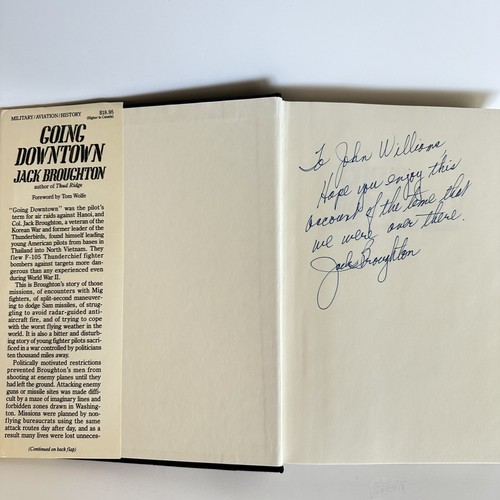 MILITARY/AVIATION/HISTORY
$18.95
(Higher in Canada)
GOING
DOWNTOWN
JACK BROUGHTON
author of Thud Ridge
Foreword by Tom Wolfe
"Going Downtown" was the pilot's
term for air raids against Hanoi, and
Col. Jack Broughton, a veteran of the
Korean War and former leader of the
Thunderbirds, found himself leading
young American pilots from bases in
Thailand into North Vietnam. They
flew F-105 Thunderchief fighter
bombers against targets more dan-
gerous than any experienced even
during World War II.
This is Broughton's story of those
missions, of encounters with Mig
fighters, of split-second maneuver-
ing to dodge Sam missiles, of strug-
gling to avoid radar-guided anti-
aircraft fire, and of trying to cope
with the worst flying weather in the
world. It is also a bitter and disturb-
ing story of young fighter pilots sacri-
ficed in a war controlled by politicians
ten thousand miles away.
Politically motivated restrictions
prevented Broughton's men from
shooting at enemy planes until they
had left the ground. Attacking enemy
guns or missile sites was made diffi-
cult by a maze of imaginary lines and
forbidden zones drawn in Washing-
ton. Missions were planned by non-
flying bureaucrats using the same
attack routes day after day, and as a
result many lives were lost unneces-
(Continued on back flap)
To John Williams,
Hope you enjoy this
account of the time that
we were over there.
Jack Broughton